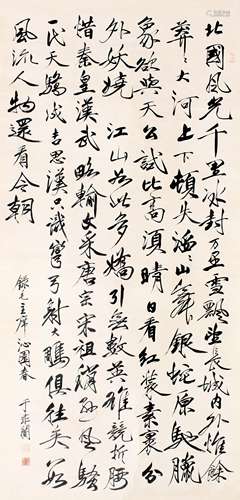 北國風光千里冰封萬里雪飄望長城內外惟餘
莽々大河上下頓失滔々山舞銀蛇原馳臘
象欲與天公試比高須晴日看紅裝素裹分
外妖嬈 江山如此多嬌引無數英雄競折腰
惜秦皇漢武略輸文采唐宗宋祖稍遜風騷
一代天驕成吉思漢只識彎弓射大鵰俱往矣數
風流人物還看今朝
錄毛主席沁園春 于非闇